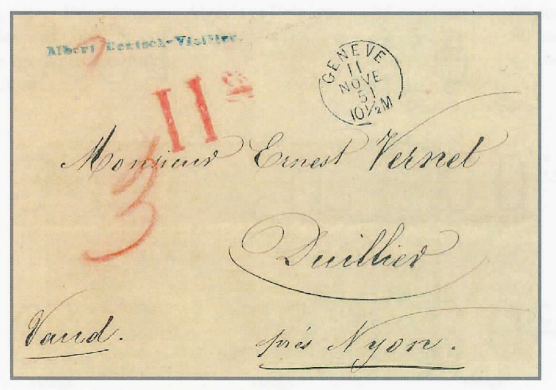 Albert
GENEVE
11
NOVE
51
10½M
11
3
Monsieur Ernest Vernet
Duillier
Vaud.
près Nyon.